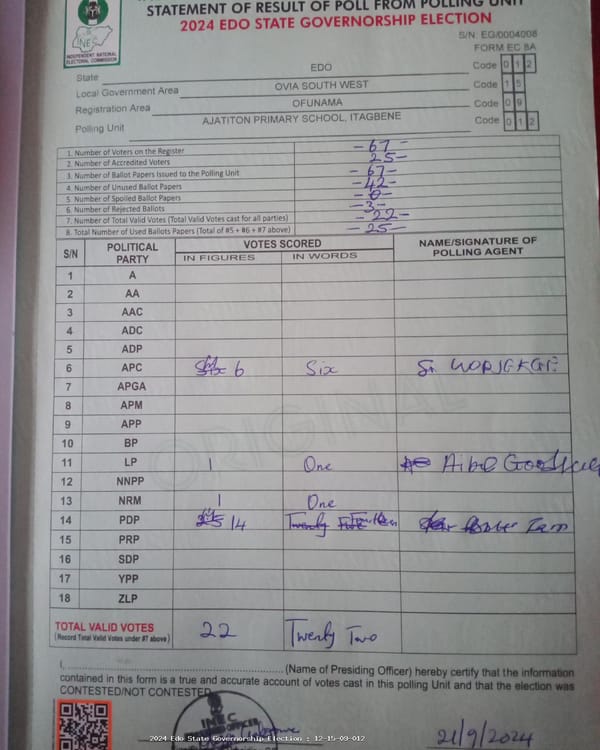 STATEMENT OF RESULT OF POLL FROM POLLING UNIT
2024 EDO STATE GOVERNORSHIP ELECTION
INEC
INDEPENDENT NATIONAL ELECTORAL COMMISSION
S/N: EG/0004008
FORM EC 8A
State EDO Code 0 1 2
Local Government Area OVIA SOUTH WEST Code 1 5
Registration Area OFUNAMA Code 0 9
Polling Unit AJATITON PRIMARY SCHOOL, ITAGBENE Code 0 1 2
1. Number of Voters on the Register -67-
2. Number of Accredited Voters 25-
3. Number of Ballot Papers Issued to the Polling Unit -67-
4. Number of Unused Ballot Papers -42-
5. Number of Spoiled Ballot Papers -0-
6. Number of Rejected Ballots -3-
7. Number of Total Valid Votes (Total Valid Votes cast for all parties) -22-
8. Total Number of Used Ballots Papers (Total of #5 + #6 + #7 above) -25-
S/N POLITICAL PARTY VOTES SCORED NAME/SIGNATURE OF POLLING AGENT
IN FIGURES IN WORDS
1 A
2 AA
3 AAC
4 ADC
5 ADP
6 APC 6 Six
7 APGA
8 APM
9 APP
10 BP
11 LP 1 One
12 NNPP
13 NRM 1 One
14 PDP 14 Twenty Five Fourteen
15 PRP
16 SDP
17 YPP
18 ZLP
TOTAL VALID VOTES 22 Twenty Two
(Record Total Valid Votes under #7 above)
ORIGINAL
I, (Name of Presiding Officer) hereby certify that the information
contained in this form is a true and accurate account of votes cast in this polling Unit and that the election was
CONTESTED/NOT CONTESTED
INEC
21/9/2024
2024 Edo State Governorship Election : 12-15-09-012